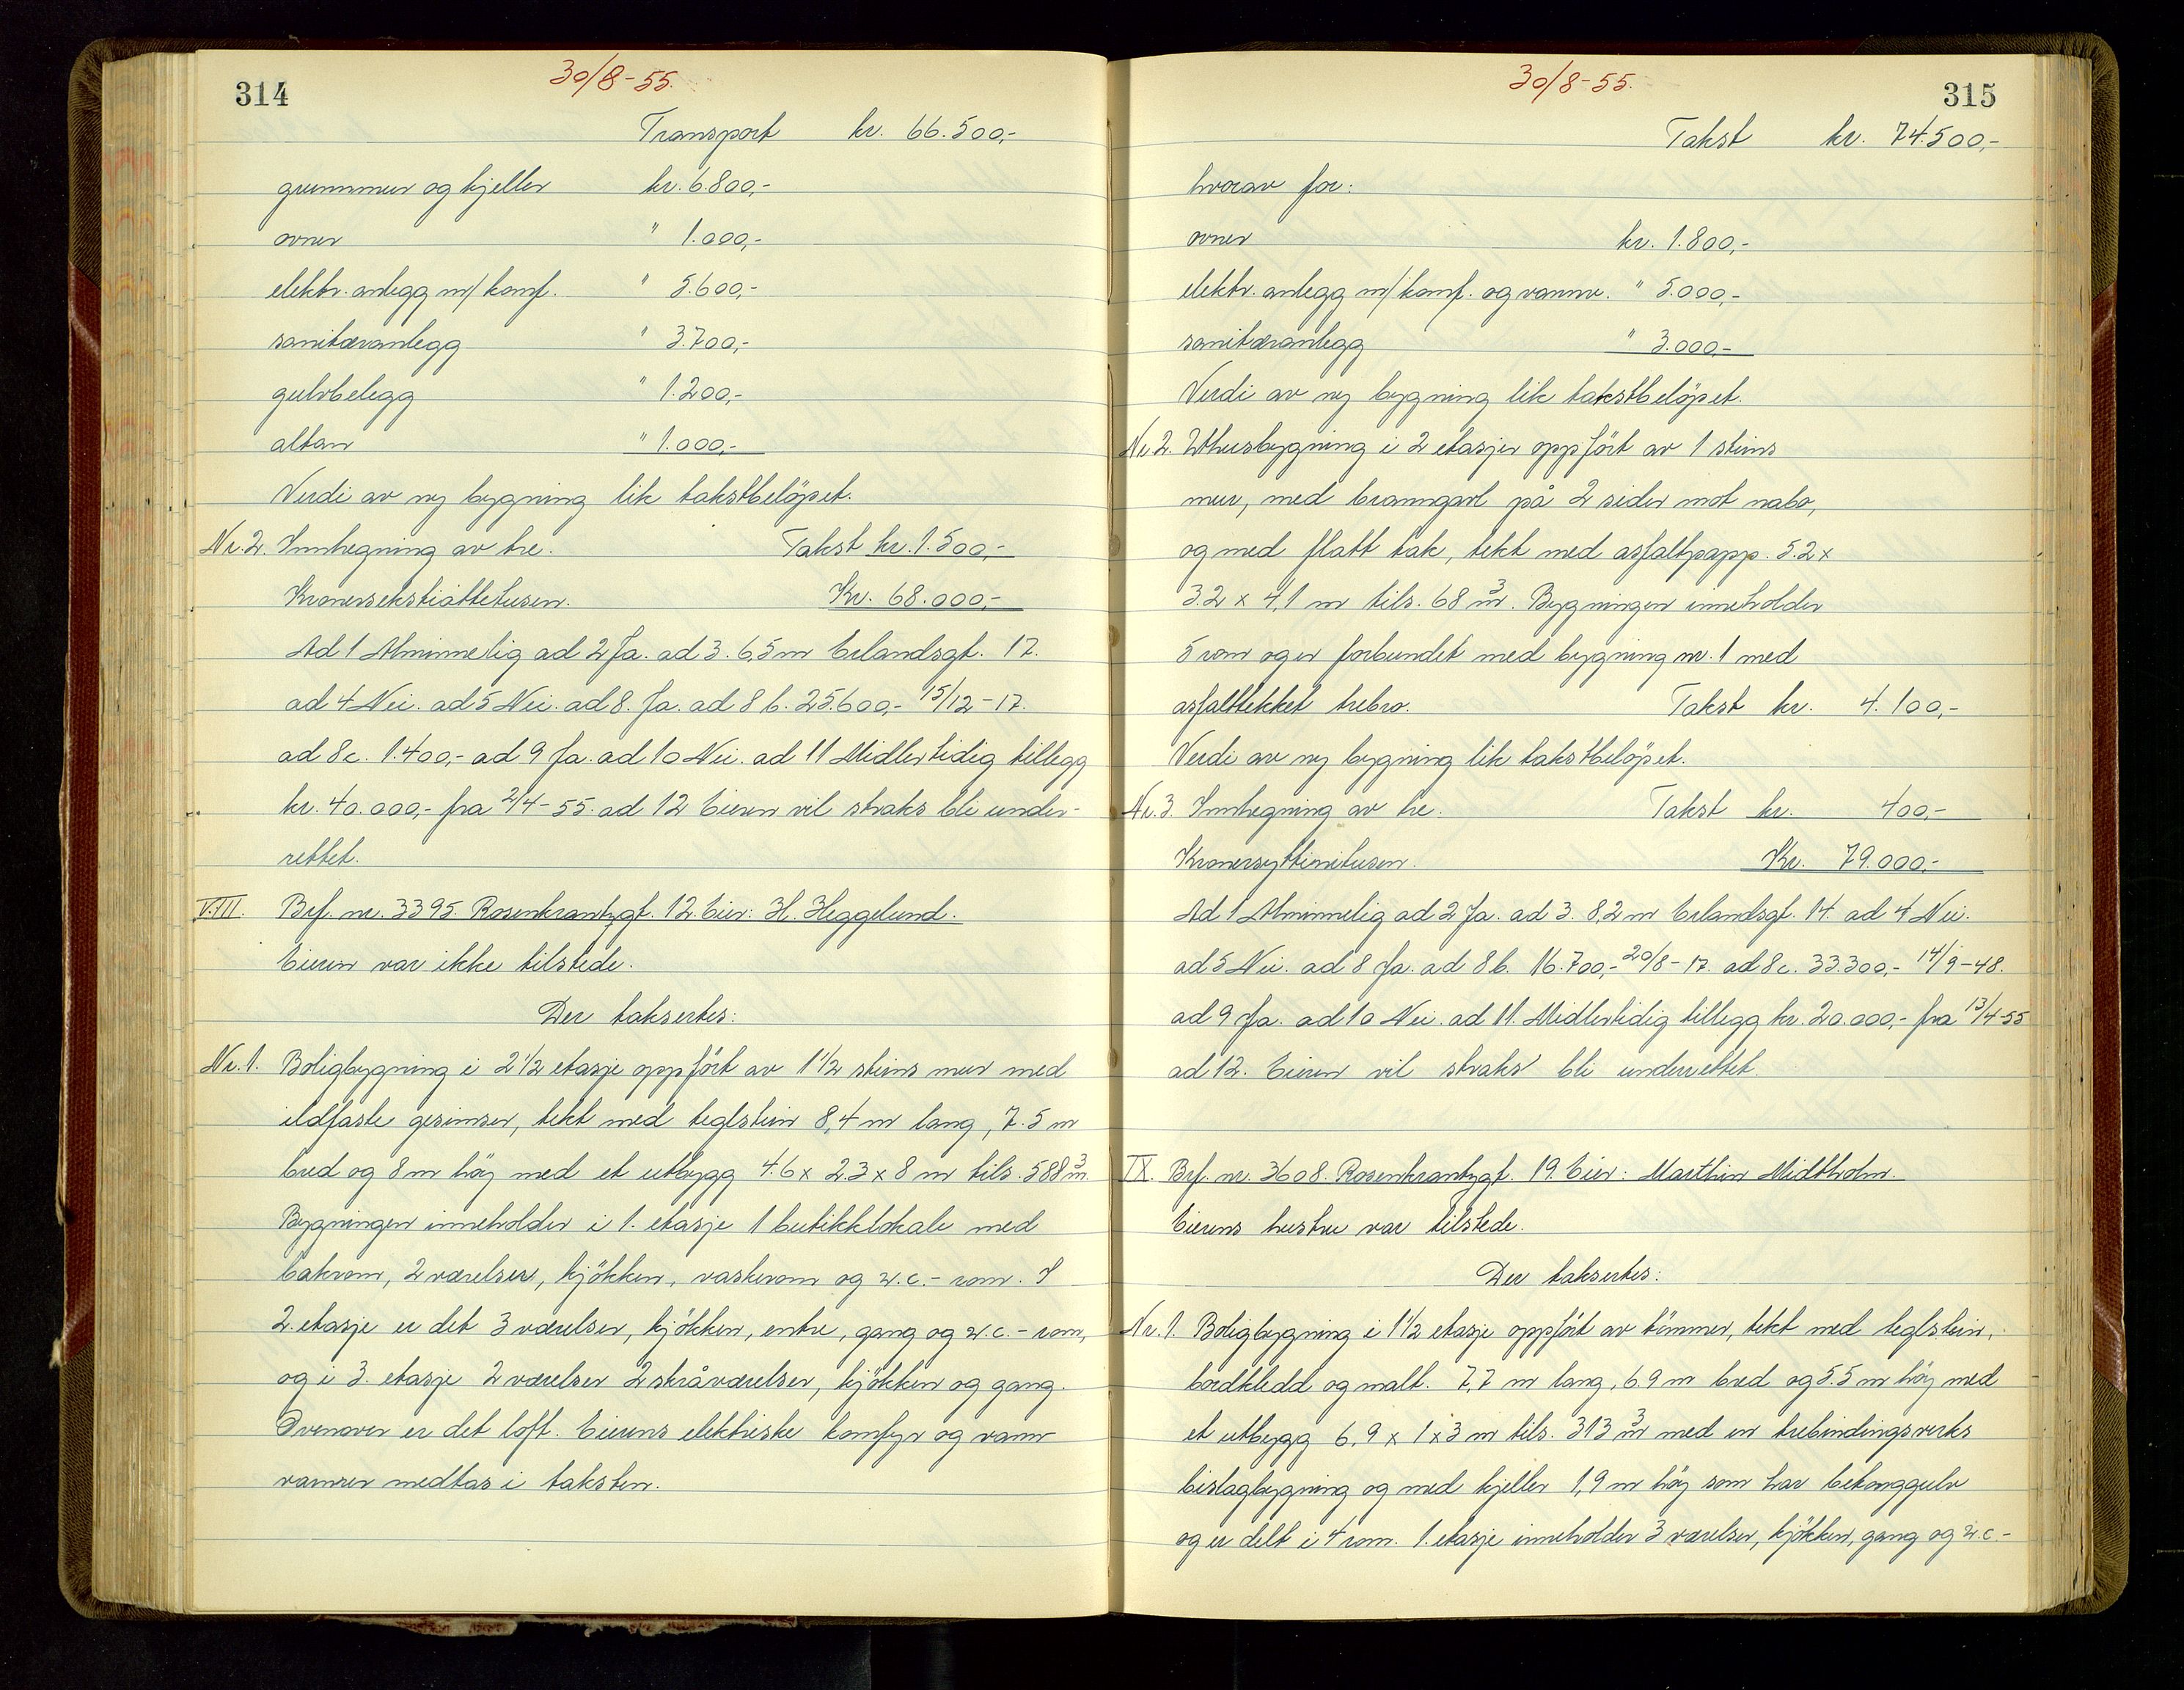 314
30/8-55.
Transport kr. 66.500,-
grunnmur og kjeller kr. 6.800,-
ovner " 1.000,-
elektr. anlegg m/ komf. " 5.600,-
sanitæranlegg " 3.700,-
gulvbelegg " 1.200,-
altan " 1.000,-
Verdi av ny bygning lik takstbelöpet.
Nr. 2. Innhegning av tre. Takst kr. 1.500,-
Kronersekstiåttetusen. Kr. 68.000,-
Ad 1 Alminnelig ad 2 Ja. ad 3. 6,5 m Erlandsgt. 17.
ad 4 Nei. ad 5 Nei. ad 8. Ja. ad 8 b. 25.600,- 15/12-17.
ad 8 c. 1.400,- ad 9 Ja. ad 10 Nei. ad 11 Midlertidig tillegg
kr. 40.000,- fra 2/4-55. ad 12 Eieren vil straks bli under-
rettet.
VIII. Brf. nr. 3395. Rosenkrantzgt. 12. Eier: H. Heggelund.
Eieren var ikke tilstede.
Der taksertes:
Nr. 1. Boligbygning i 2 1/2 etasje oppfört av 1 1/2 stens mur med
ildfaste gesimser, tekt med teglstein 8,4 m lang, 7.5 m
bred og 8 m höy med et utbygg 4.6 x 2.3 x 8 m tils. 588 m3.
Bygningen inneholder i 1. etasje 1 butikklokale med
bakrom, 2 værelser, kjökken, vaskerom og w.c.- rom. I
2. etasje er det 3 værelser, kjökken, entre, gang og w.c.- rom,
og i 3. etasje 2 værelser 2 skråværelser, kjökken og gang.
Ovenover er det loft. Eierens elektriske komfyr og vann-
varmer medtas i taksten.
315
30/8-55.
Takst kr. 74.500,-
hvorav for:
ovner kr. 1.800,-
elektr. anlegg m/ komf. og vannv. " 5.000,-
sanitæranlegg " 3.000,-
Verdi av ny bygning lik takstbelöpet.
Nr. 2. Uthusbygning i 2 etasjer oppfört av 1 steins
mur, med branngavl på 2 sider mot nabo,
og med flatt tak, tekt med asfaltpapp. 5.2 x
3.2 x 4,1 m tils. 68 m3. Bygningen inneholder
5 rom og er forbundet med bygning nr. 1 med
asfalttekket trebro. Takst kr. 4.100,-
Verdi av ny bygning lik takstbelöpet.
Nr. 3. Innhegning av tre. Takst kr. 400,-
Kronersyttinitusen. Kr. 79.000,-
Ad 1 Alminnelig ad 2 Ja. ad 3. 8,2 m Erlandsgt. 14. ad 4 Nei.
ad 5 Nei. ad 8 Ja. ad 8 b. 16.700,- 20/8-17. ad 8 c. 33.300,- 14/9-48.
ad 9 Ja. ad 10 Nei. ad 11. Midlertidig tillegg kr. 20.000,- fra 13/4-55
ad 12. Eieren vil straks bli underrettet.
IX. Brf. nr. 3608. Rosenkrantzgt. 19. Eier: Marthin Midtholm.
Eierens hustru var tilstede.
Der taksertes:
Nr. 1. Boligbygning i 1 1/2 etasje oppfört av tömmer, tekt med teglstein,
bordkledd og malt. 7,7 m lang, 6.9 m bred og 5.5 m höy med
et utbygg 6,9 x 1 x 3 m tils. 313 m3 med en trebindingsverks
bislagbygning og med kjeller 1,9 m höy som har betonggulv
og er delt i 4 rom. 1. etasje inneholder 3 værelser, kjökken, gang og w.c.-